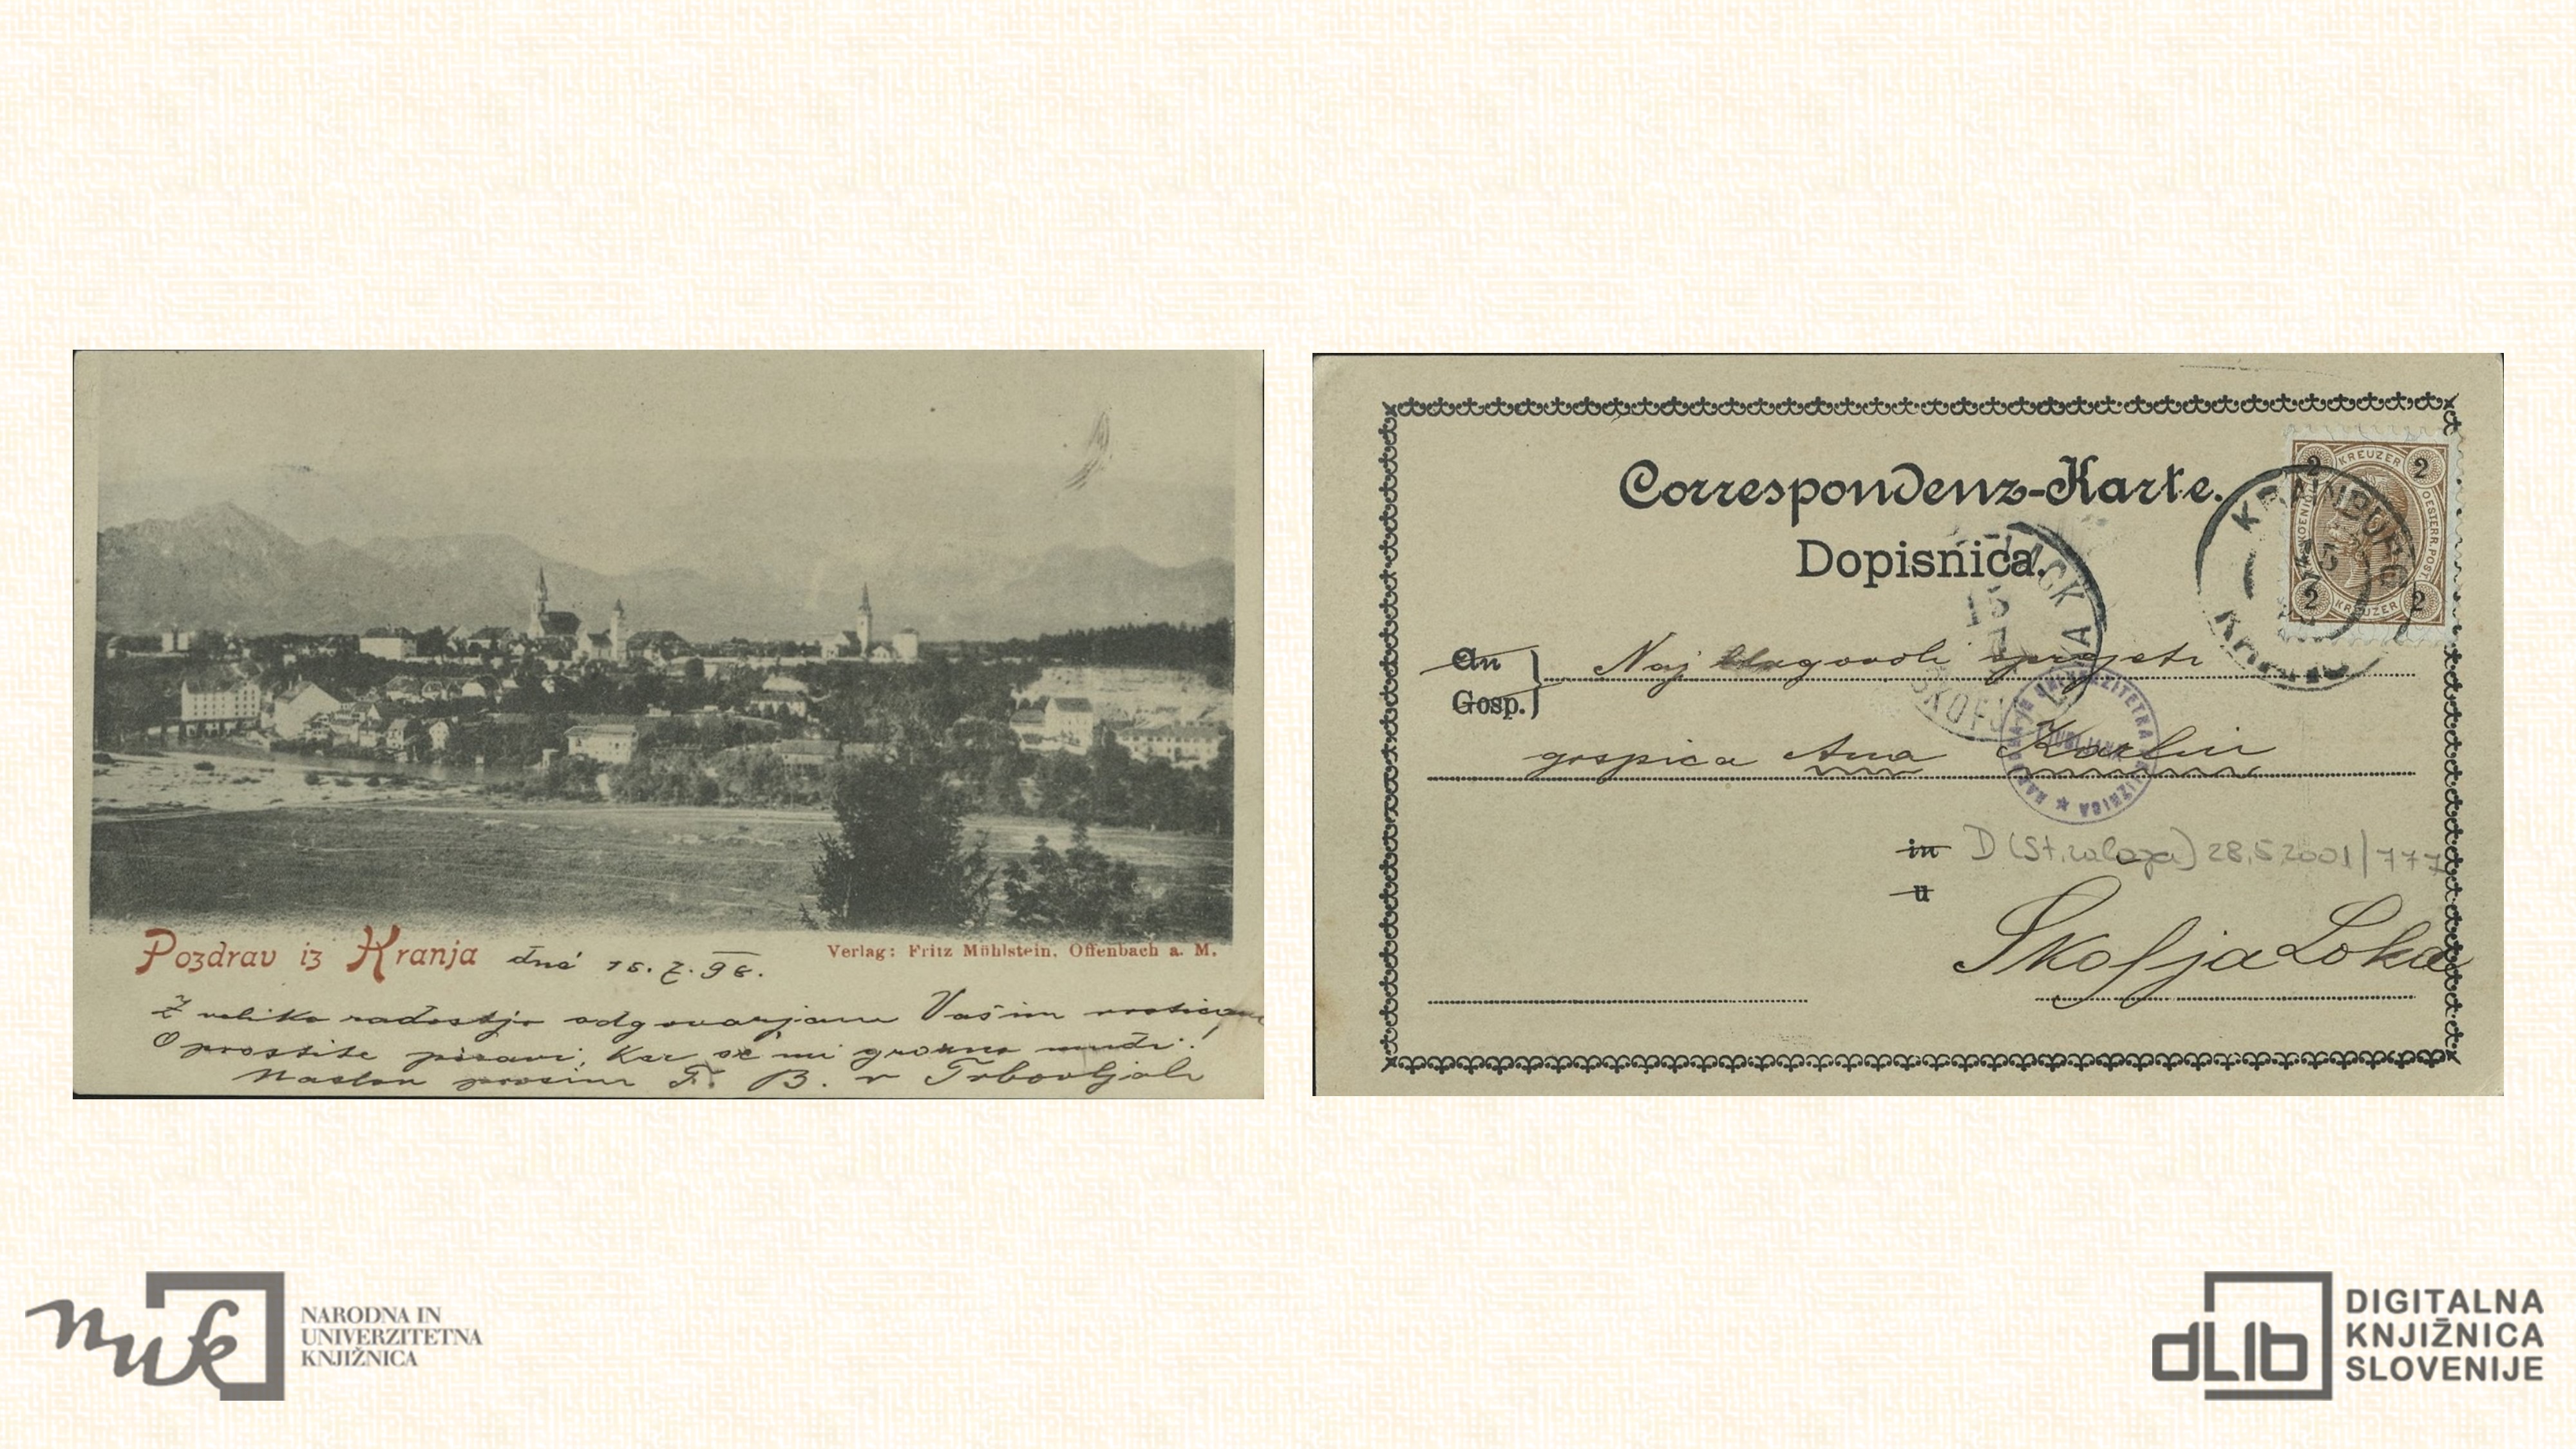 Pozdrav iz Kranja dné 15. 7. 98.
Verlag: Fritz Mühlstein, Offenbach a. M.
Z veliko radostjo odgovarjam Vašim vrsticam
Oprostite pisavi, ker se mi grozno mudi!
Naslov prosim F. B. v Trbovljah
Correspondenz-Karte.
Dopisnica.
2 KREUZER 2
OESTERR. POST
2 KREUZER 2
KRAINBURG
15
7
LACK
15
7
LOKA
ŠKOFJA
An
Gosp.
Naj blagovoli sprejeti
gospica Ana Karlin
UNIVERZITETNA KNJIŽNICA
LJUBLJANA
in D (St. zaloga) 28.5.2001/777
u
Škofja Loka
nuk
NARODNA IN
UNIVERZITETNA
KNJIŽNICA
dLib
DIGITALNA
KNJIŽNICA
SLOVENIJE